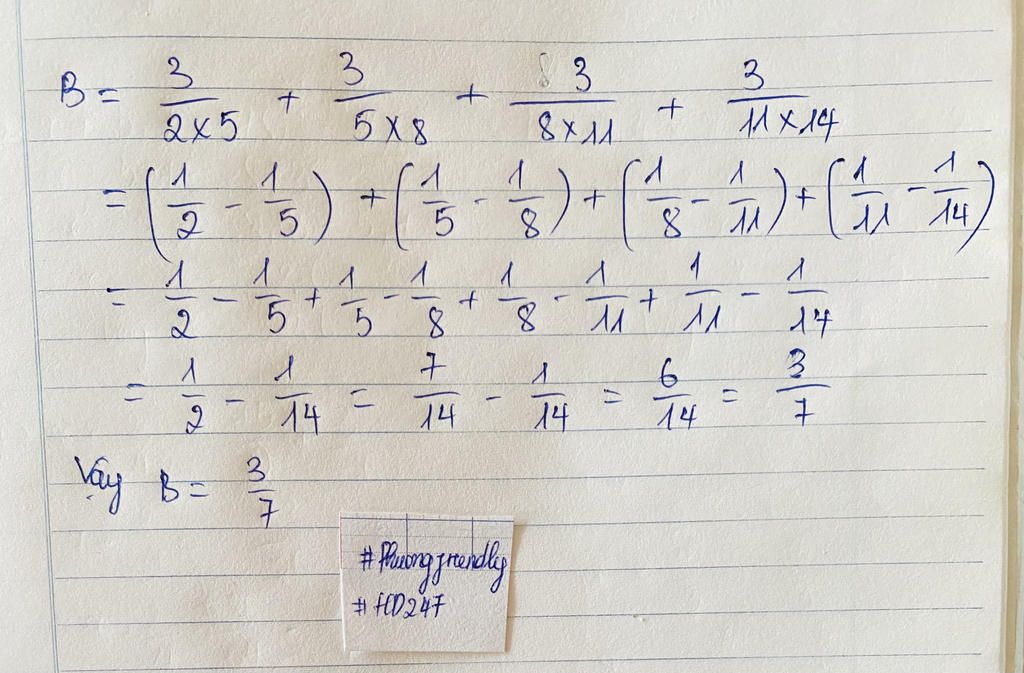 B = 3/(2×5) + 3/(5×8) + 3/(8×11) + 3/(11×14)
= (1/2 - 1/5) + (1/5 - 1/8) + (1/8 - 1/11) + (1/11 - 1/14)
= 1/2 - 1/5 + 1/5 - 1/8 + 1/8 - 1/11 + 1/11 - 1/14
= 1/2 - 1/14 = 7/14 - 1/14 = 6/14 = 3/7
Vậy B = 3/7
#Phuongfriendly
#HD247